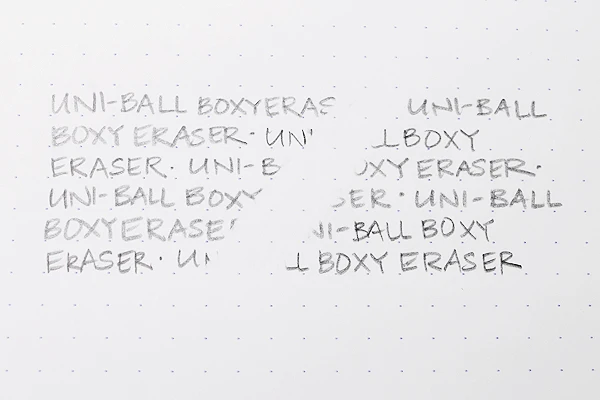 UNI-BALL BOXY ERAS UNI-BALL
BOXY ERASER· UNI L BOXY
ERASER· UNI-B OXY ERASER·
UNI-BALL BOXY SER· UNI-BALL
BOXY ERASE NI-BALL BOXY
ERASER· UN L BOXY ERASER